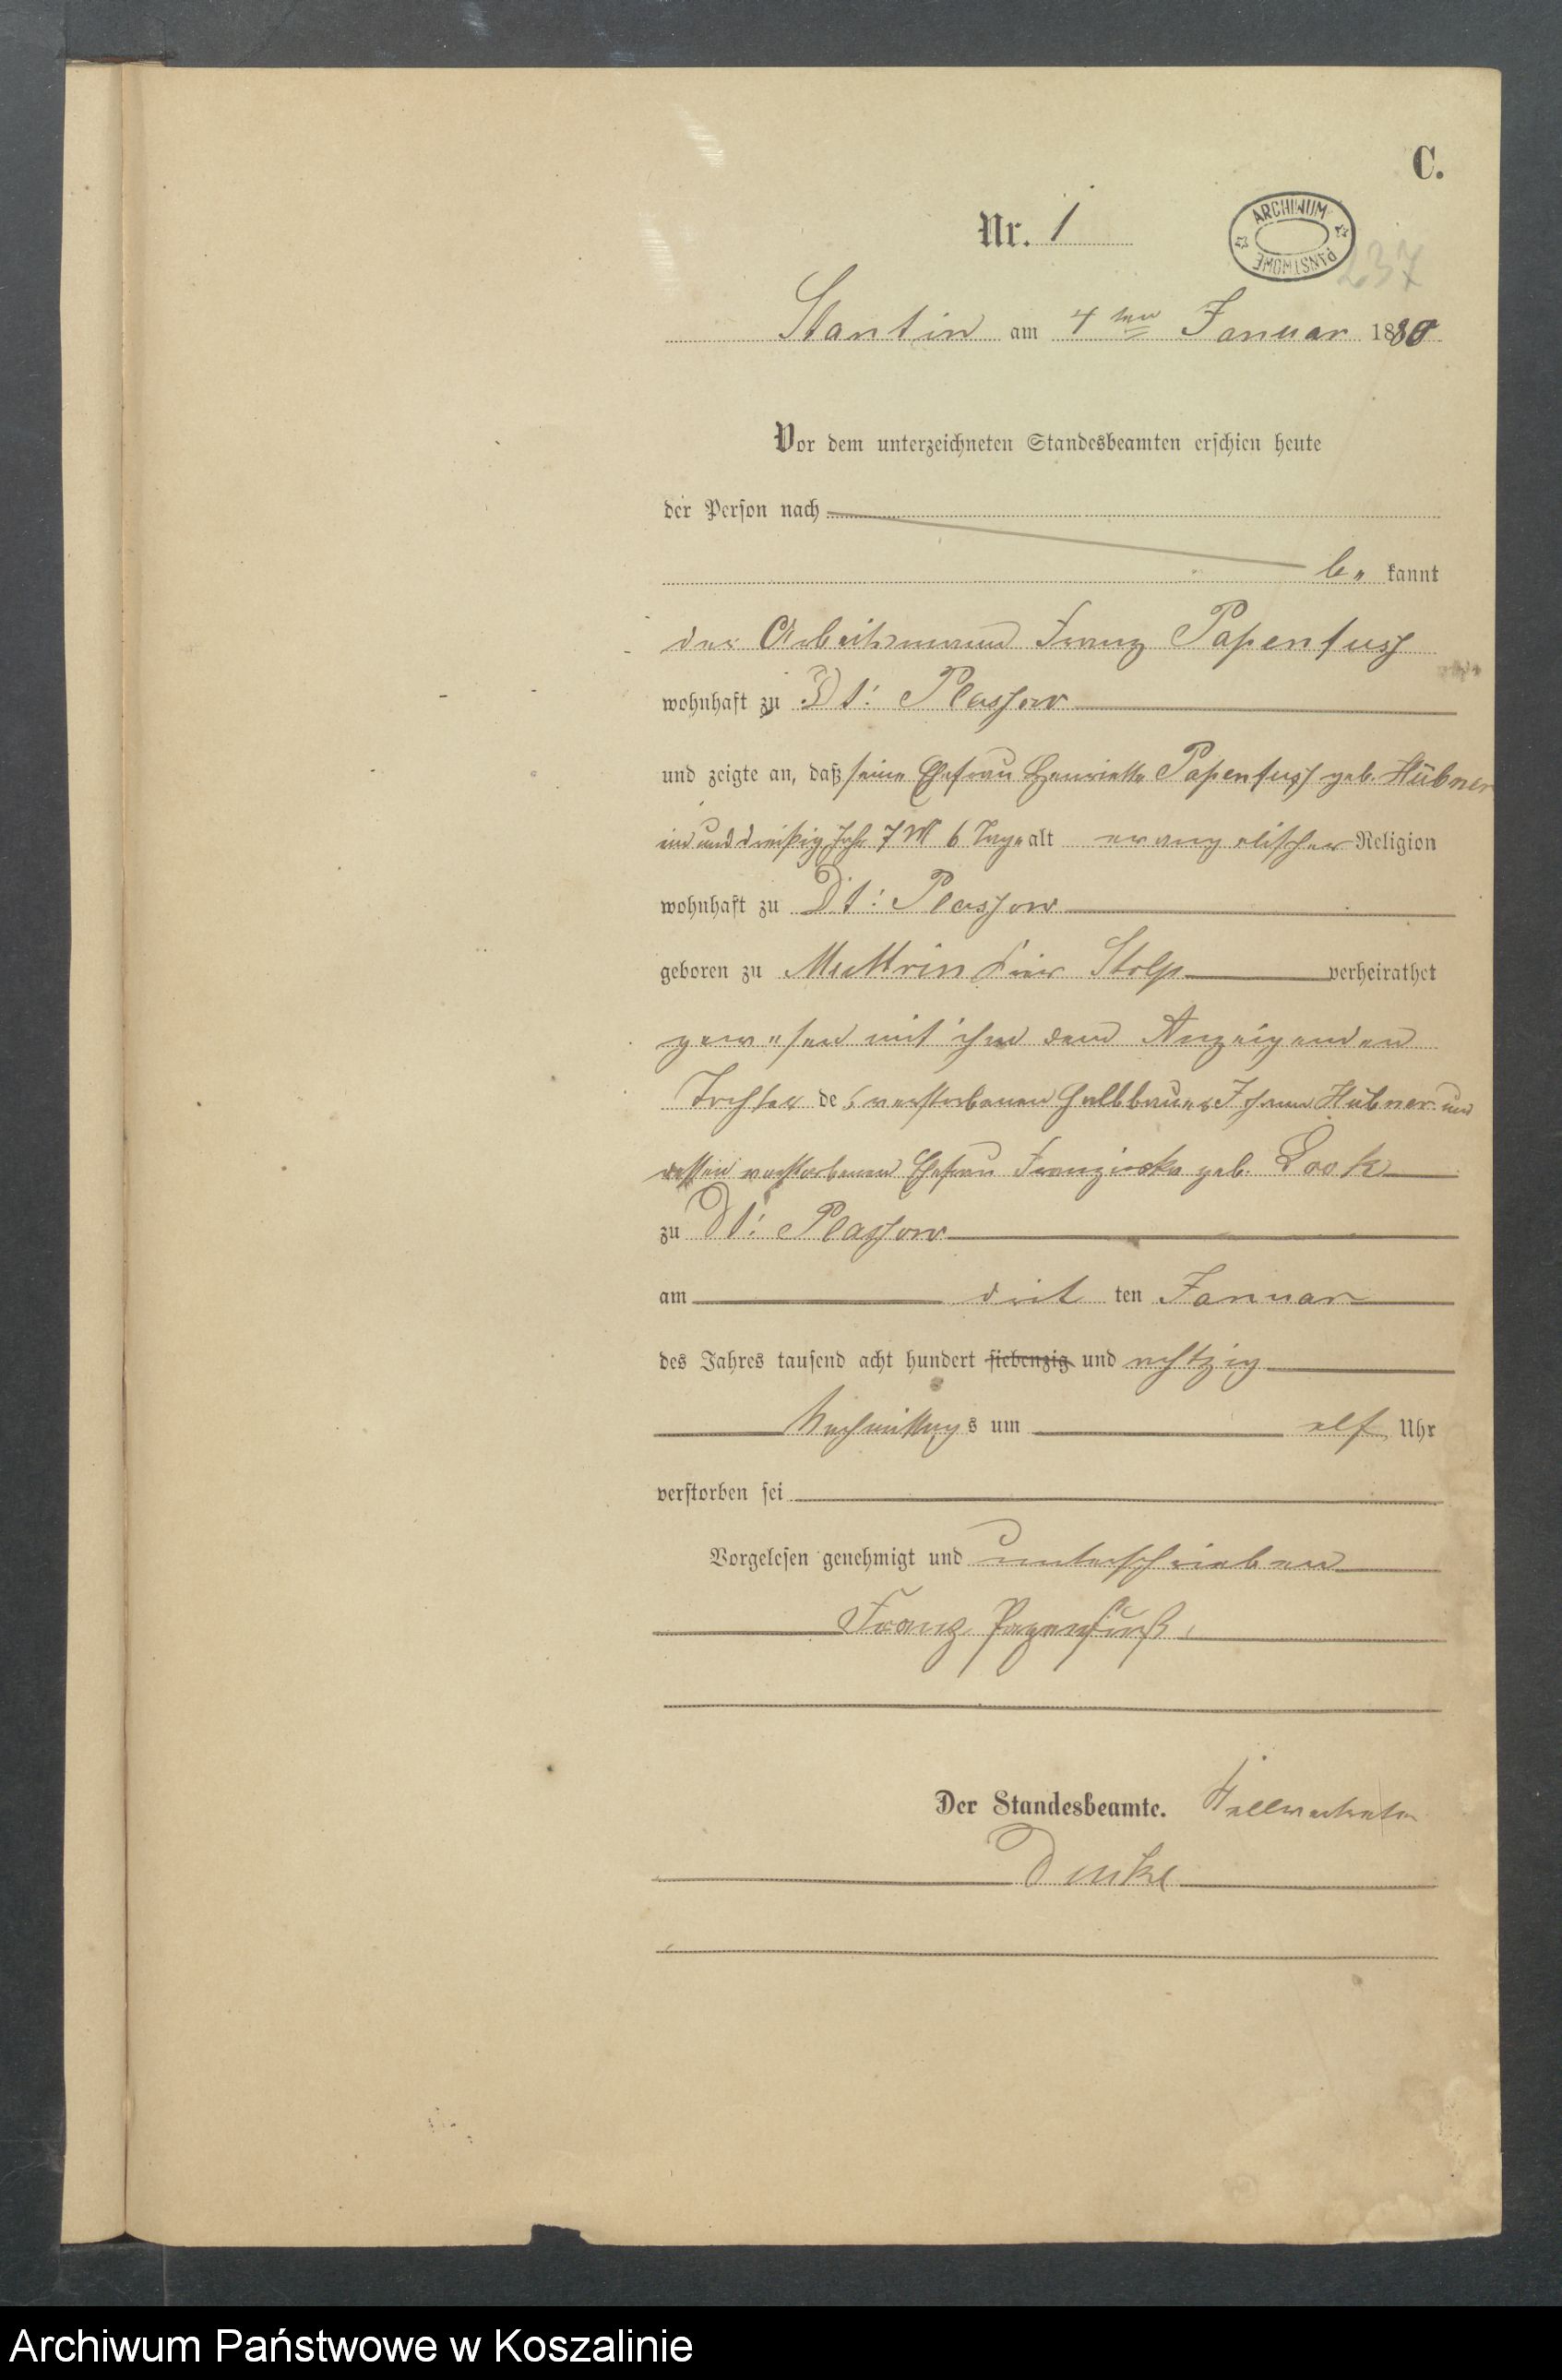 C.
Nr. 1
ARCHIWUM PAŃSTWOWE
237
Stantin am 4ten Januar 1880
Vor dem unterzeichneten Standesbeamten erschien heute
der Person nach
be kannt
der Arbeitsmann Franz Papenfuss
wohnhaft zu Dt: Plassow
und zeigte an, daß seine Ehefrau Henriette Papenfuss geb. Hübner
und dreißig Jahr 7 M 6 Tage alt evangelischer Religion
wohnhaft zu Dt: Plassow
geboren zu Muttrin Stolp verheirathet
gewesen mit ihm dem Anzeigenden
Tochter des verstorbenen Halbbauer Johann Hübner und
dessen verstorbenen Ehefrau Franziska geb. Look
zu Dt: Plassow
am drit ten Januar
des Jahres tausend acht hundert siebenzig und achtzig
Nachmittags um elf Uhr
verstorben sei
Vorgelesen genehmigt und unterschrieben
Franz Papenfuß
Der Standesbeamte.
Archiwum Państwowe w Koszalinie